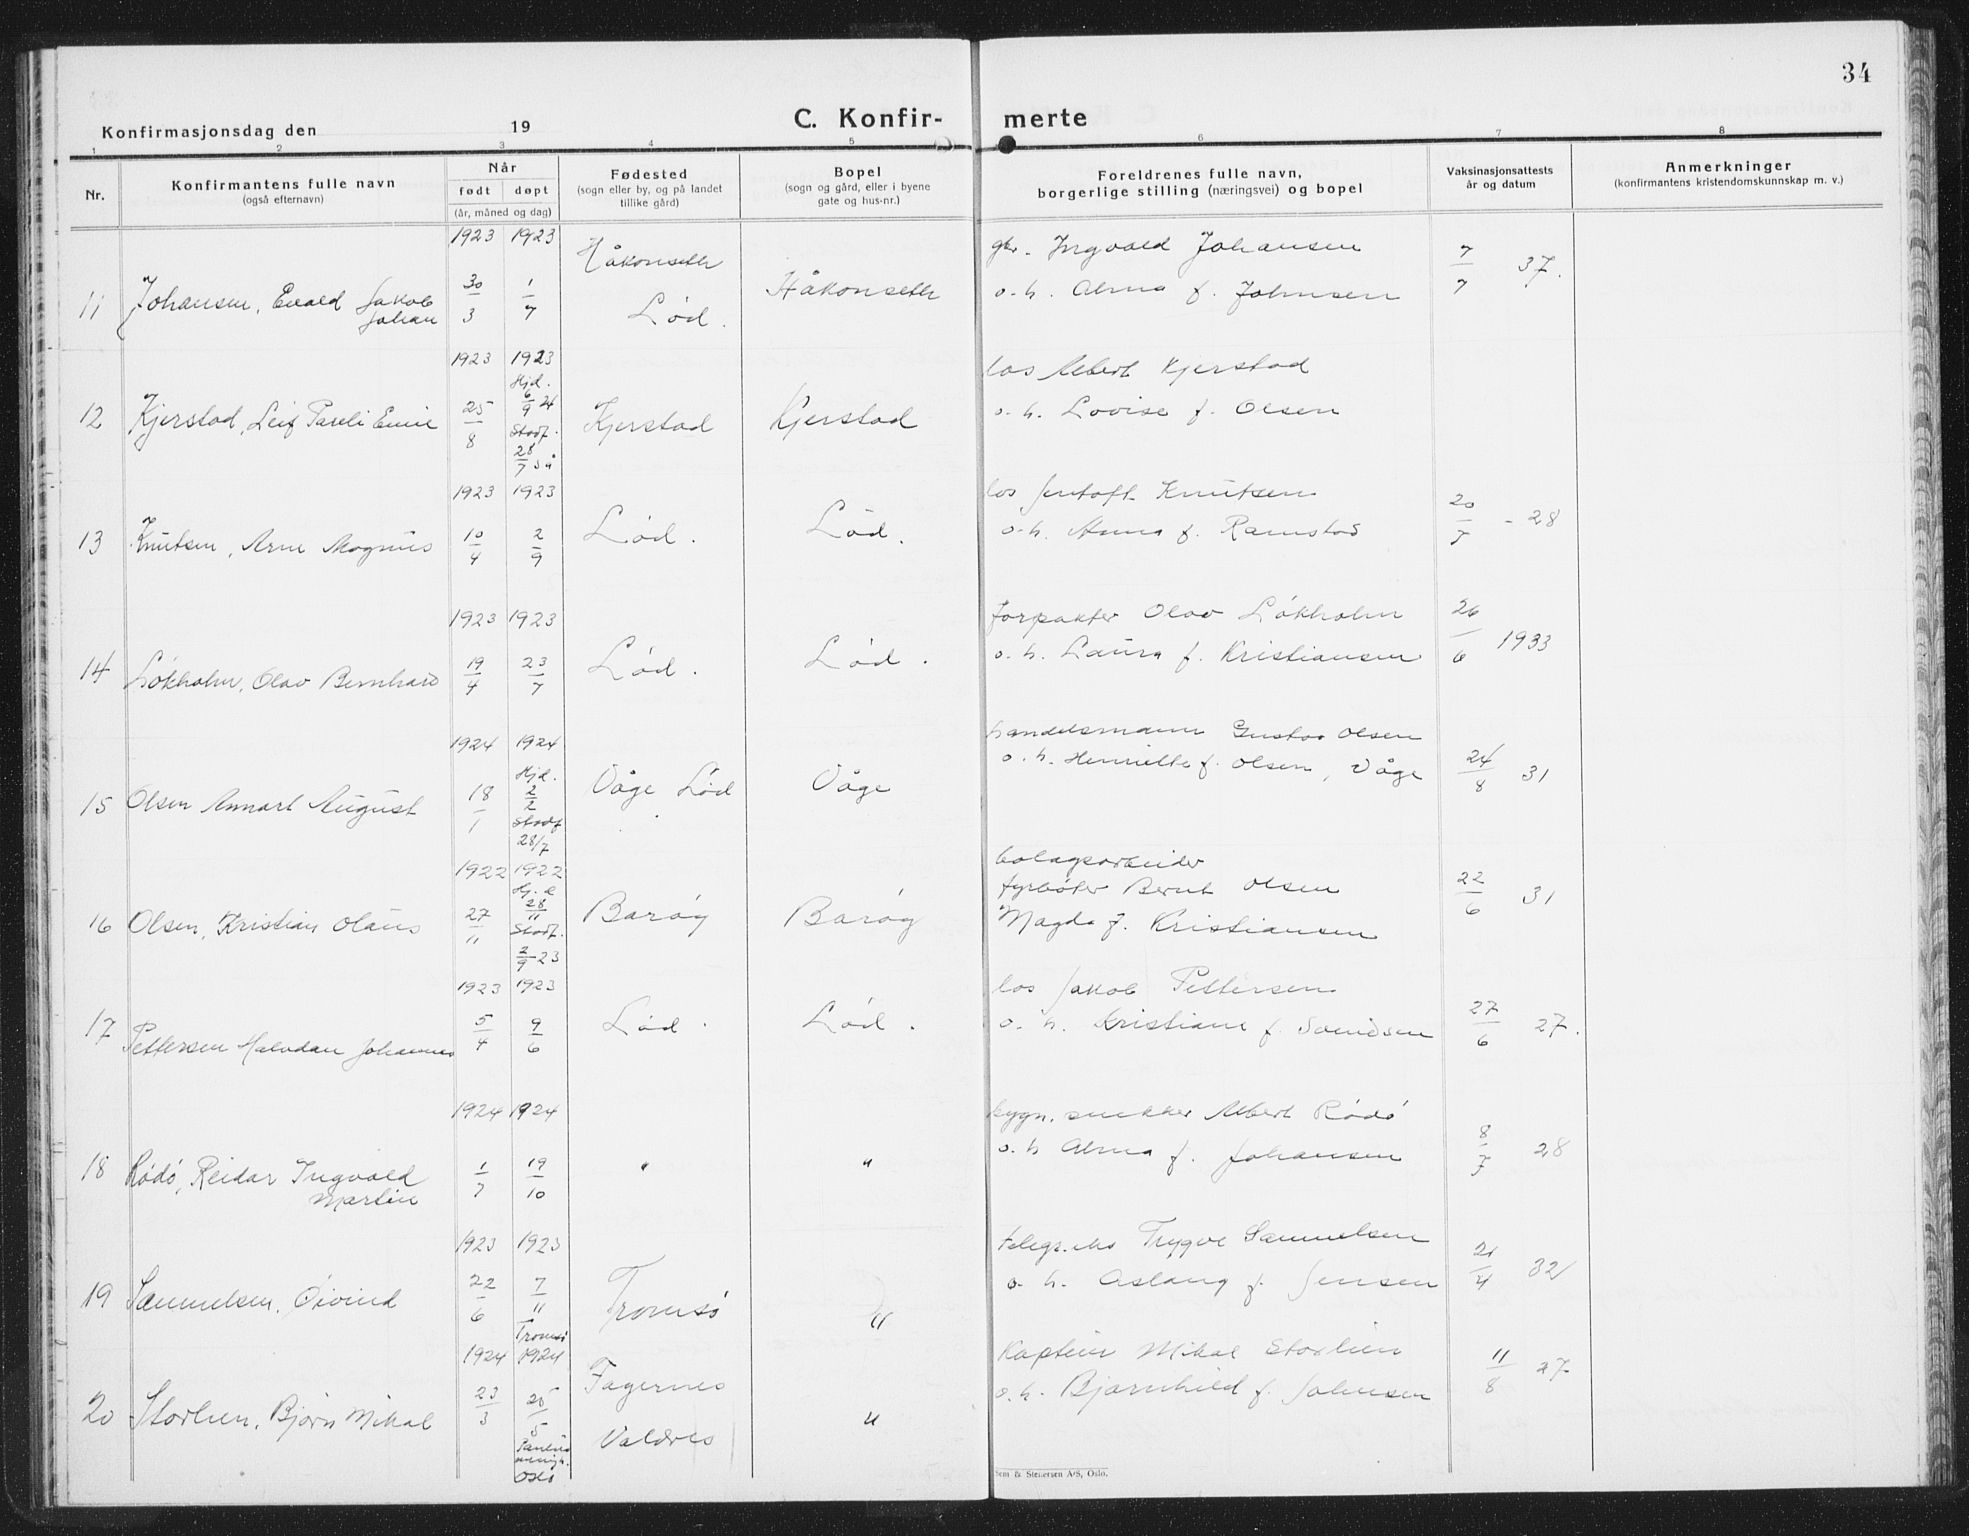 34
Konfirmasjonsdag den 19
C. Konfir-
merte
1 2 3 4 5 6 7 8
Nr.
Konfirmantens fulle navn
(også efternavn)
Når
født døpt
(år, måned og dag)
Fødested
(sogn eller by, og på landet
tillike gård)
Bopel
(sogn og gård, eller i byene
gate og hus-nr.)
Foreldrenes fulle navn,
borgerlige stilling (næringsvei) og bopel
Vaksinasjonsattests
år og datum
Anmerkninger
(konfirmantens kristendomskunnskap m. v.)
1923 1923
11 Johansen, Evald Jakob
Johan
30/3 1/7
Håkonseth
Lød.
Håkonseth
gbr. Ingvald Johansen
o. h. Alma f. Johnsen
7/7 37.
1923 1923
12 Kjerstad, Leif Pareli Emil
25/8
Hjd.
6/9 24
Stadf.
28/7 så
Kjerstad
Kjerstad
los Albert Kjerstad
o. h. Lovise f. Olsen
1923 1923
13 Knutsen, Arne Magnus
10/4 2/9
Lød.
Lød.
los Jentoft Knutsen
o. h. Anna f. Ramstad
20/5 - 28
1923 1923
14 Løkholm, Olav Bernhard
19/4 23/7
Lød.
Lød.
forpakter Olav Løkholm
o. h. Laura f. Kristiansen
26/6 1933
1924 1924
15 Olsen Annart August
18/1
Hjd.
2/2
Stadf
28/7
Våge Lød
Våge
handelsmann Gustav Olsen
o. h. Henriette f. Olsen, Våge
24/8 31
1922 1922
16 Olsen, Kristian Olaus
27/11
Hj. d
28/11
Stadf.
2/9 23
Barøy
Barøy
bolagsarbeider
fyrbøter Bernt Olsen
Magda f. Kristiansen
22/6 31
1923 1923
17 Pettersen Halvdan Johannes
5/4 9/6
Lød.
Lød.
los Jakob Pettersen
o. h. Kristiane f. Svendsen
27/6 27.
1924 1924
18 Rødø, Reidar Ingvald
Martin
1/7 19/10
" "
bygn. snekker Albert Rødø
o. h Alma f. Johansen
8/7 28
1923 1923
19 Samuelsen, Øivind
22/6 7/11
Tromsø
Tromsø
"
telegr. eks Trygve Samuelsen
o. h. Aslaug f. Jensen
21/4 32
1924 1924
20 Storlien, Bjørn Mikal
23/3 25/5
Paulus
menigh.
Oslo
Fagernes
Valdres
"
Kaptein Mikal Storlien
o. h. Bjarnhild f. Johnsen
11/8 27
Sem & Stenersen A/S, Oslo.